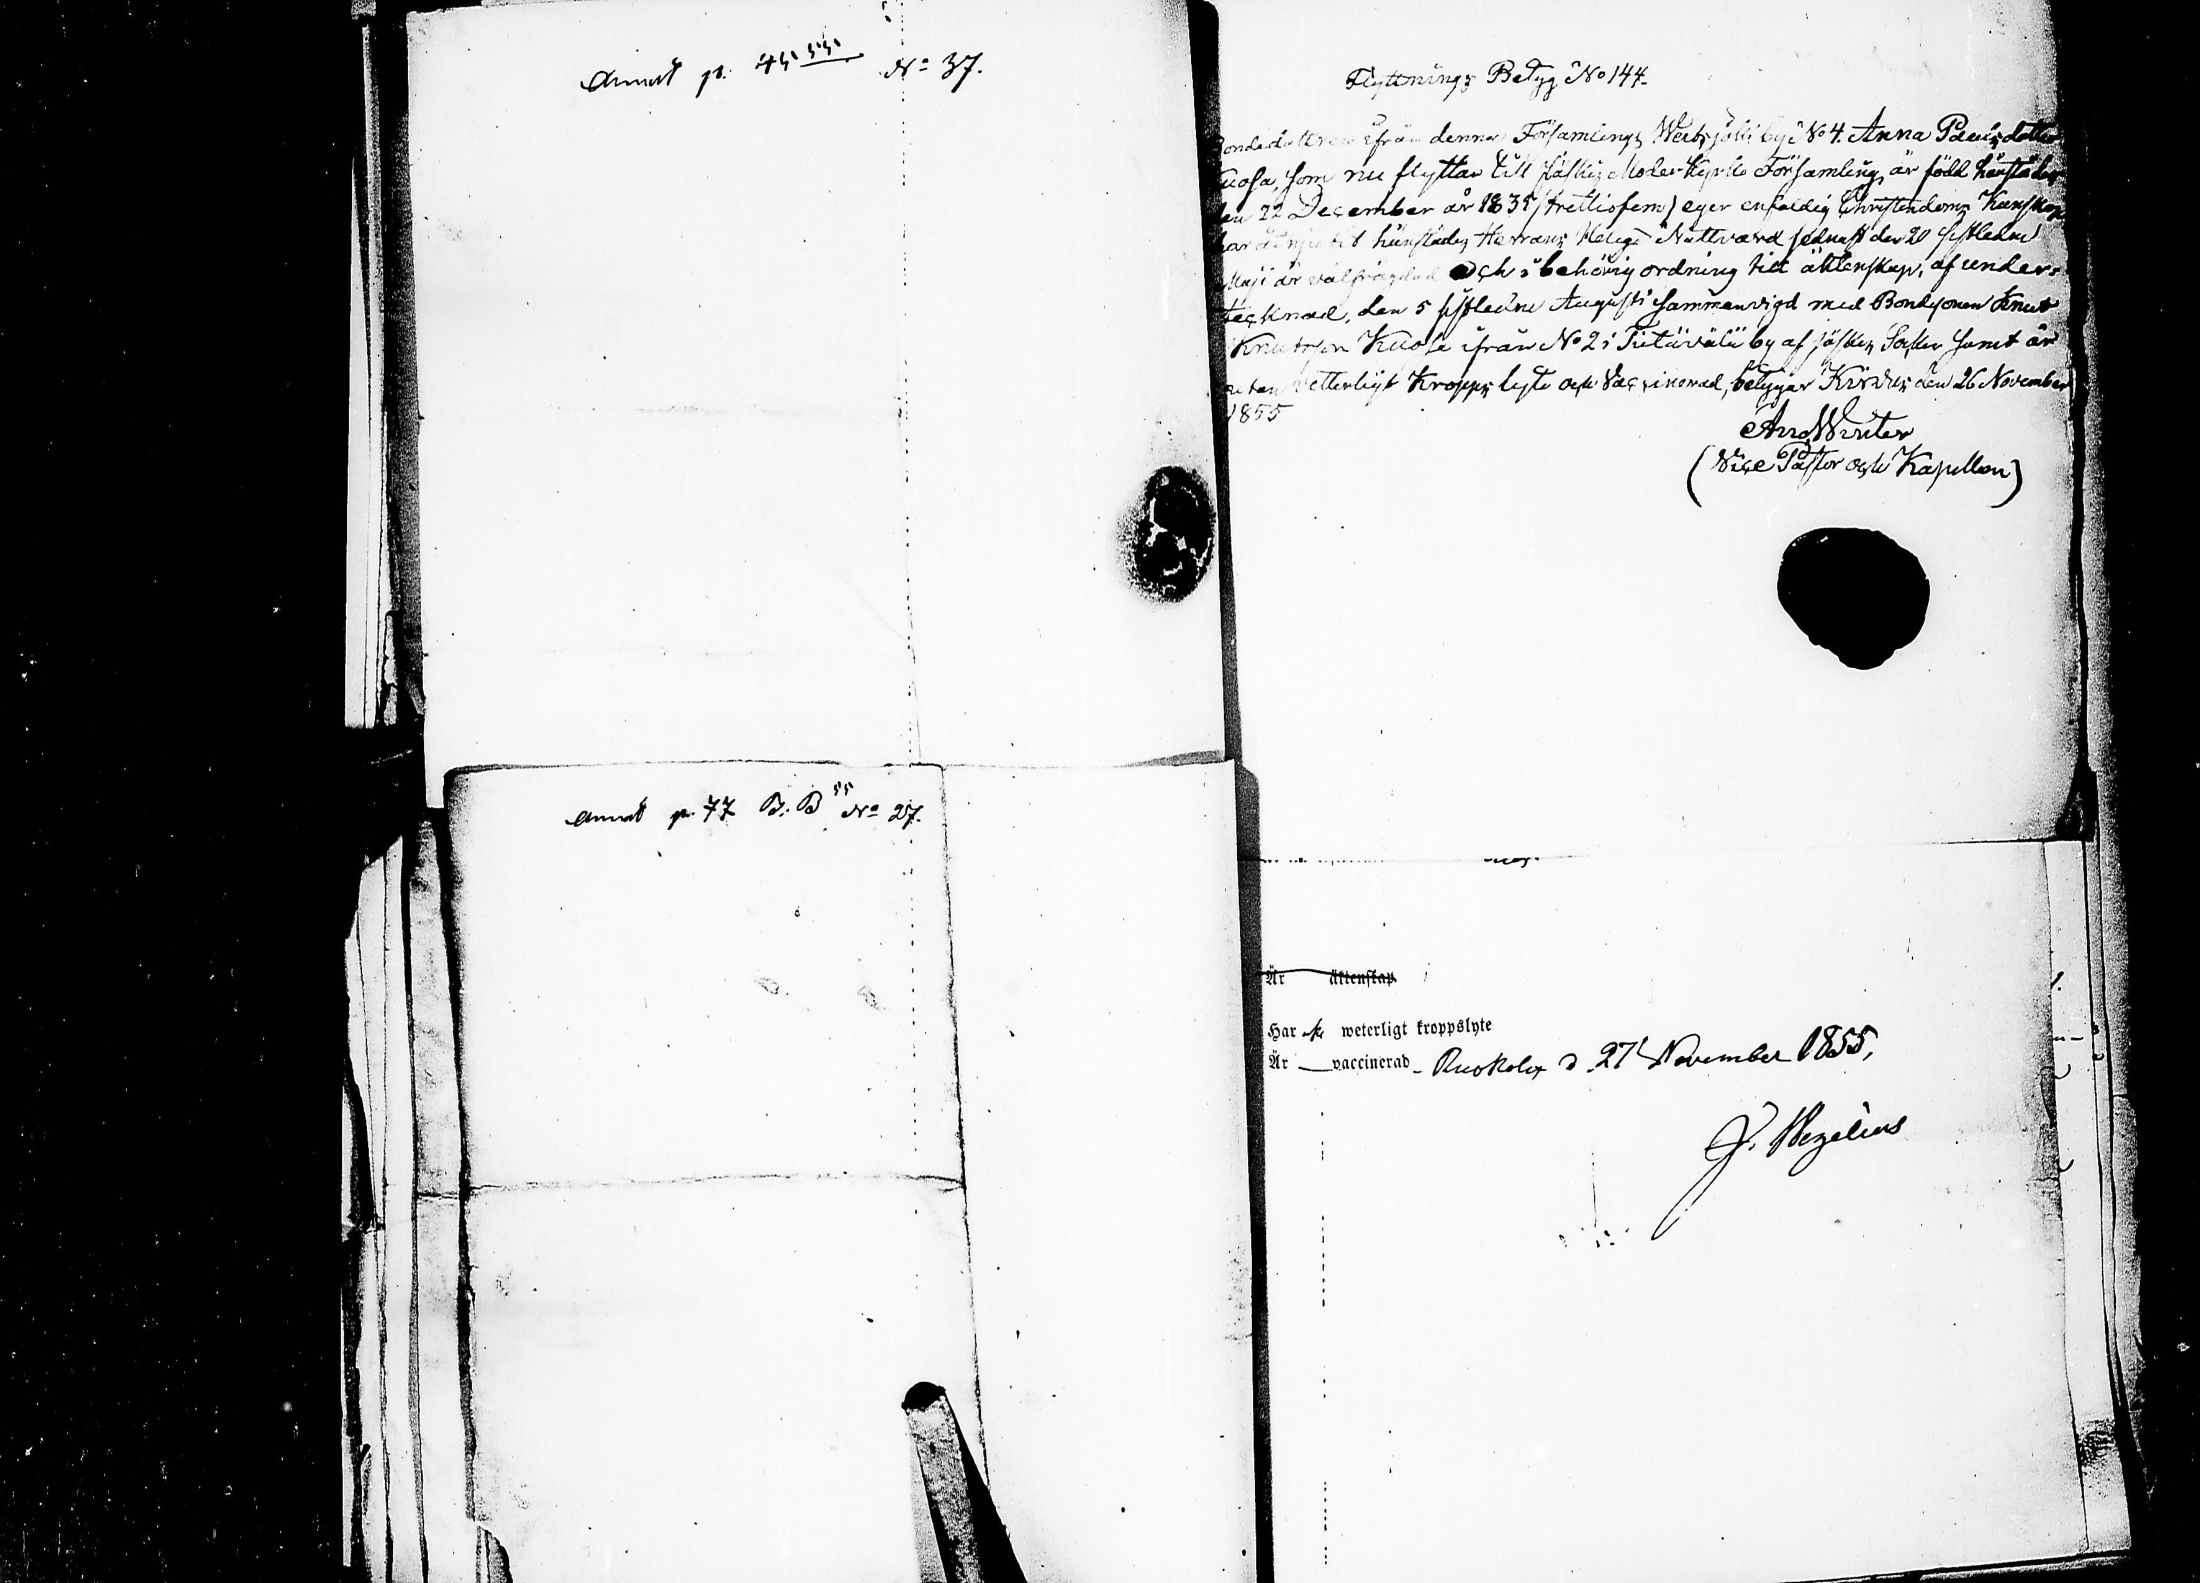 Annot p. 45 55 No 37.
Flyttnings Betyg No 144.
Bondedottren ifrån denna Församlings Weitsjoki by No 4. Anna Paulsdotter
Kuosa, som nu flyttar till Jäskis Moderkyrko Församling, är född härstädes
den 22 December år 1835 (trettiofem) eger enfaldig Christendoms Kunskap
har åtnjutit härstädes Herrans Heliga Nattvard sednast den 20 sistledne
Maji är välfrägdad och i behörig ordning till äktenskap, af under-
tecknad, den 5 sistledne Augusti sammanvigd med Bondesonen Knut
Knutsson Kuosa ifrån No 2 i Tietäwälä by af Jäskis Socken samt är
utan vetterligt Kropps lyte och Vaccinerad, betygar Kirvus den 26 November
1855
And Winter
(Vice Pastor och Kapellan)
Annot p. 77 B. B 55 No 27.
Är äktenskap
Har ej weterligt kroppslyte
Är vaccinerad Ruokolax d 27 November 1855,